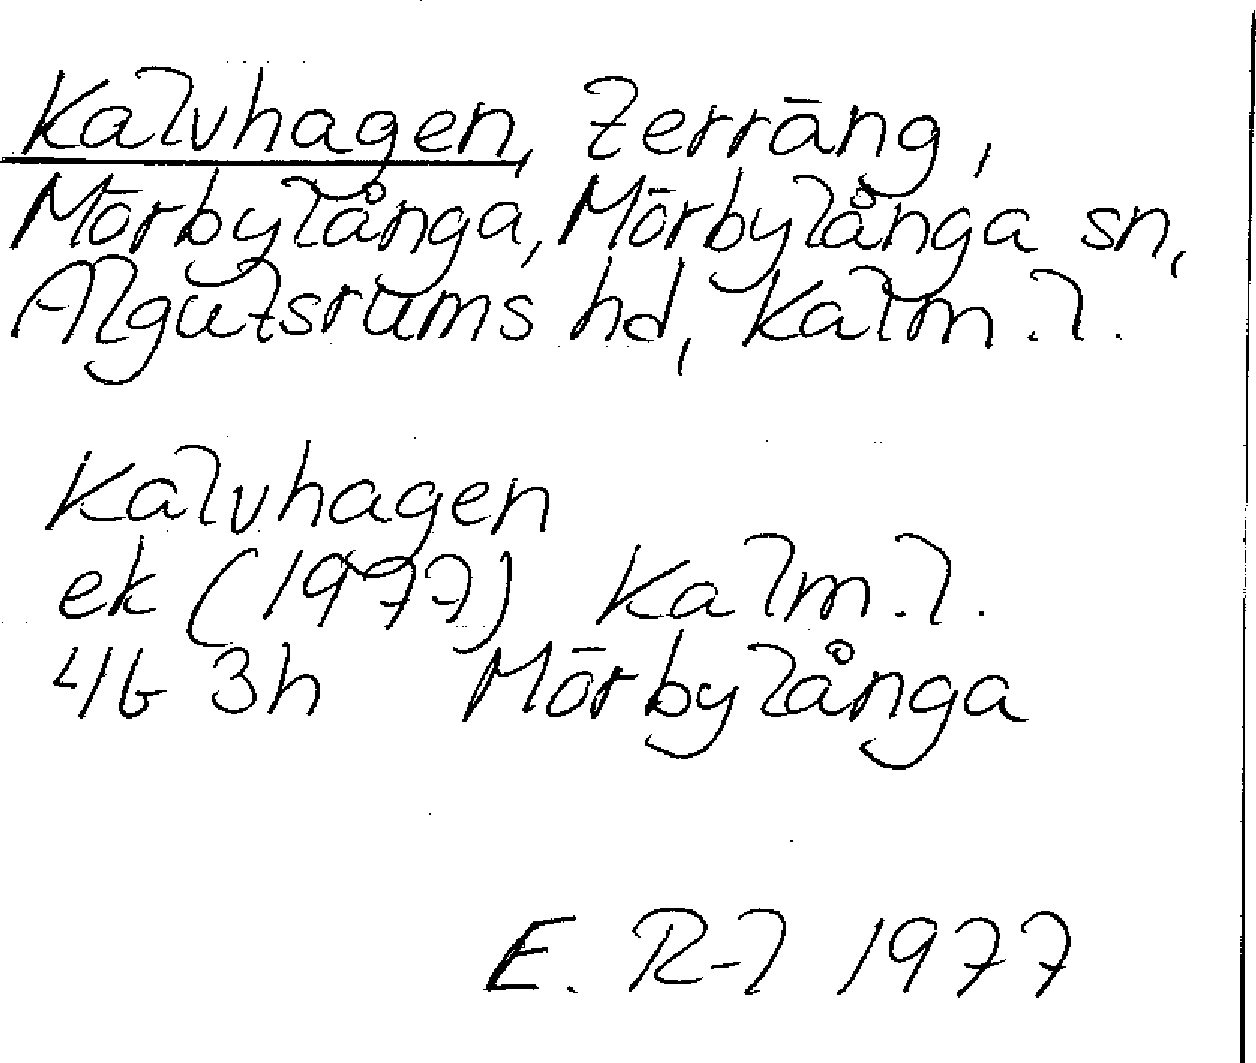 Kalvhagen, terräng,
Mörbylånga, Mörbylånga sn,
Algutsrums hd, Kalm. l.
Kalvhagen
ek (1977) Kalm. l.
4G 3h Mörbylånga
E. R-l 1977